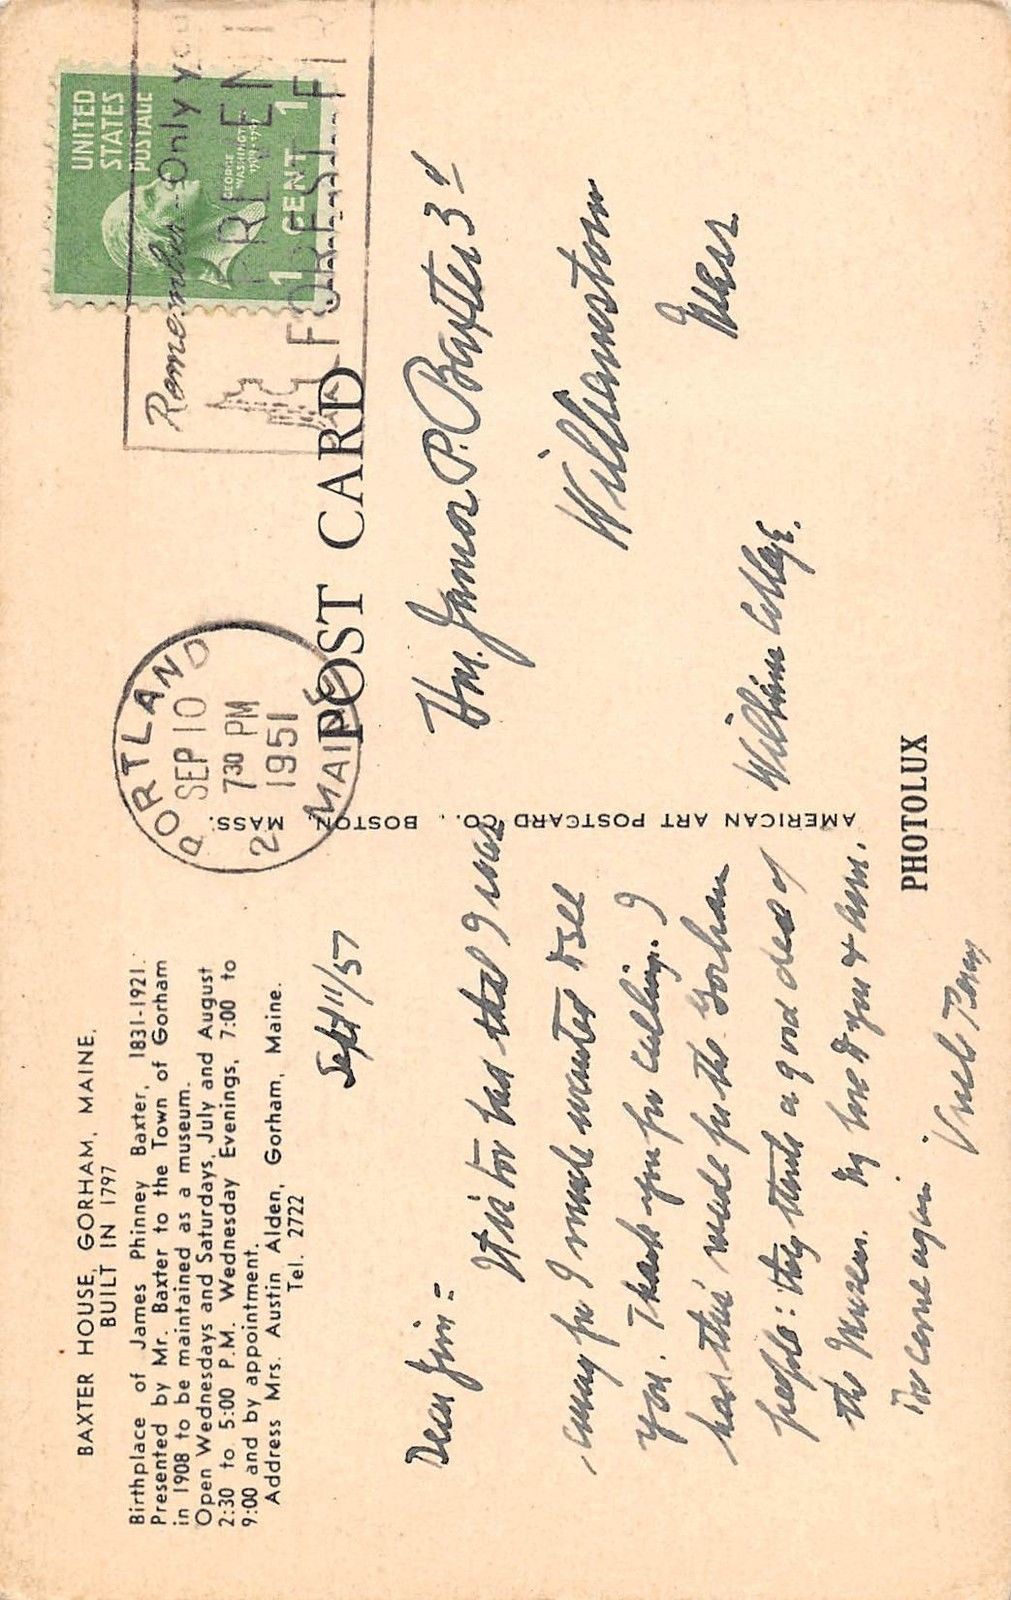 BAXTER HOUSE, GORHAM, MAINE.
BUILT IN 1797
Birthplace of James Phinney Baxter, 1831-1921.
Presented by Mr. Baxter to the Town of Gorham
in 1908 to be maintained as a museum.
Open Wednesdays and Saturdays, July and August
2:30 to 5:00 P.M. Wednesday Evenings, 7:00 to
9:00 and by appointment.
Address Mrs. Austin Alden, Gorham, Maine.
Tel. 2722
Sept 11/51
Dear Jim =
It is too bad that I was
away for I much wanted to see
you. Thank you for calling. I
had this made for the Gorham
people: they think a good deal of
the Museum. My love to you &
Do come again
Uncle Percy
AMERICAN ART POSTCARD CO., BOSTON, MASS.
PHOTOLUX
POST CARD
PORTLAND
SEP 10
7 30 PM
1951
2 MAINE
Remember-Only you
PREVENT
FOREST FI
UNITED
STATES
POSTAGE
GEORGE
WASHINGTON
1 CENT 1
Hon. James P. Baxter 3d
Williamstown
Mass
Williams College.